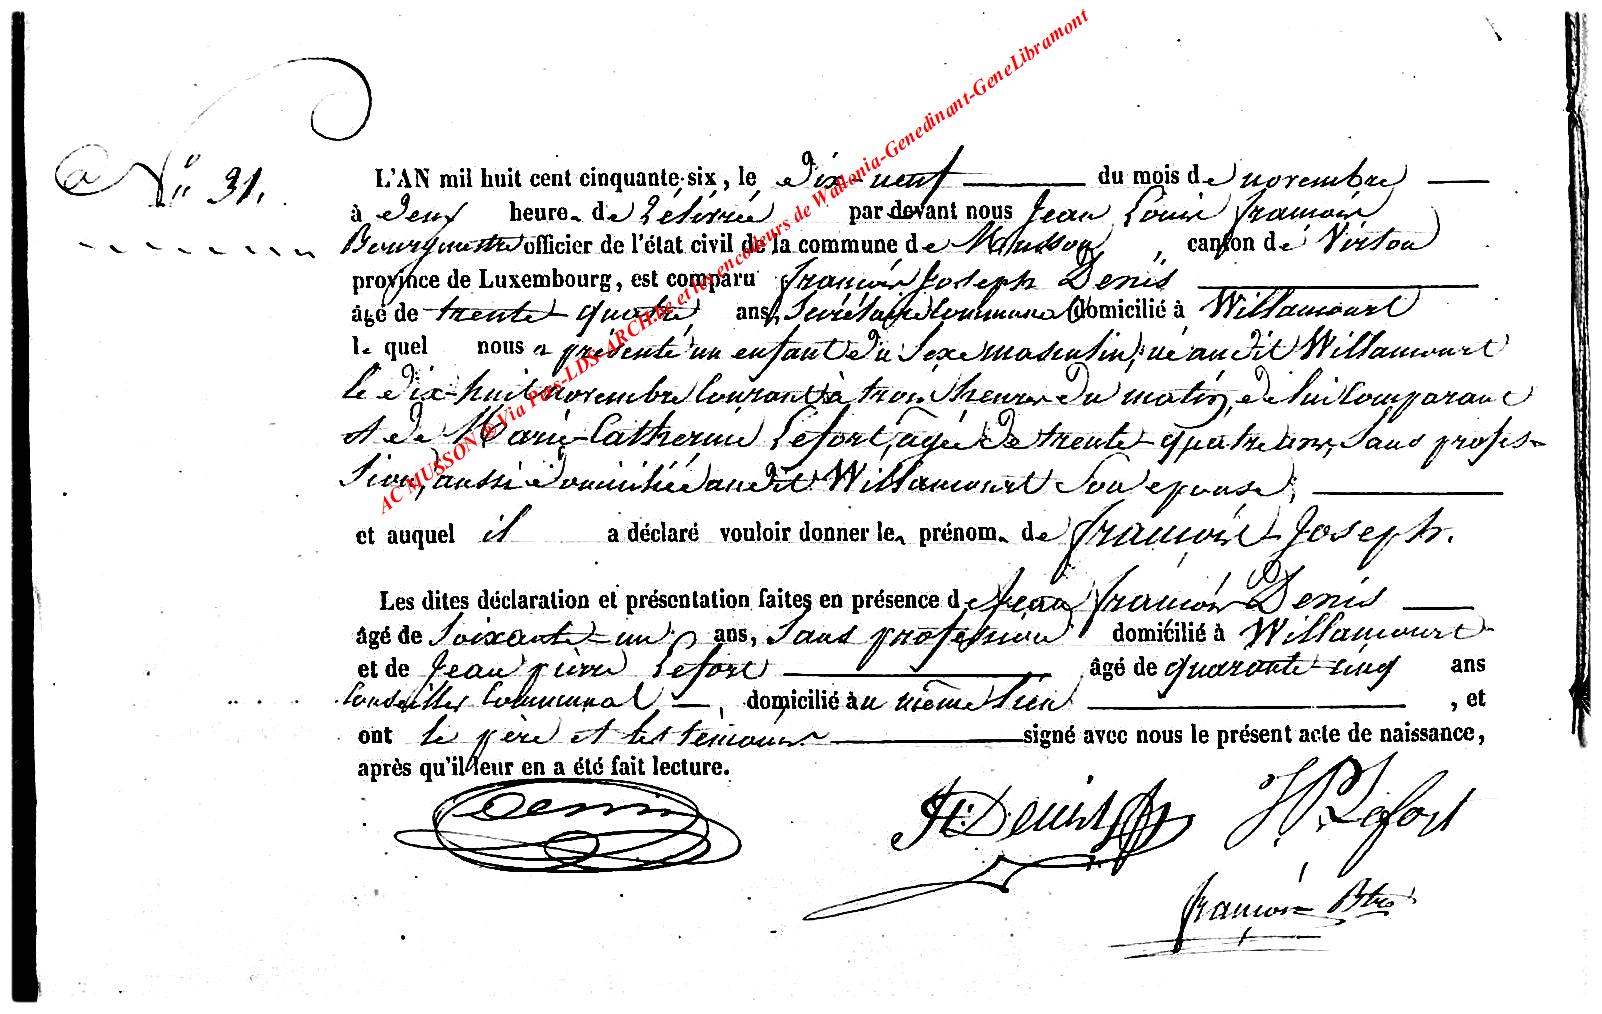 N° 31.
L'AN mil huit cent cinquante-six, le dix-neuf du mois de novembre
à deux heure de rélévée par devant nous Jean Louis françois
Bourgmestre officier de l'état civil de la commune de Musson, canton de Virton
province de Luxembourg, est comparu françois Joseph Denis
âgé de trente-quatre ans, Secrétaire Communal domicilié à Willancourt
le quel nous a présenté un enfant du sexe masculin, né audit Willancourt
le dix-huit novembre courant à trois heures du matin, de lui Comparant
et de Marie-Catherine Lefort, agée de trente-quatre ans, Sans profes-
sion, aussi domiciliée audit Willancourt Son epouse,
et auquel il a déclaré vouloir donner le prénom de françois-Joseph.
Les dites déclaration et présentation faites en présence de Jean françois Denis
âgé de Soixante-un ans, Sans profession domicilié à Willancourt
et de Jean pierre Lefort âgé de quarante-cinq ans
Conseiller Communal, domicilié au même lieu, et
ont le père et les témoins signé avec nous le présent acte de naissance,
après qu'il leur en a été fait lecture.
Denis
Jf: Denis JP. Lefort
françois Btre
AC MUSSON @ Via Pars-LDS-ARCH.be et les encodeurs de Wallonia-Genedinant-GeneLibramont